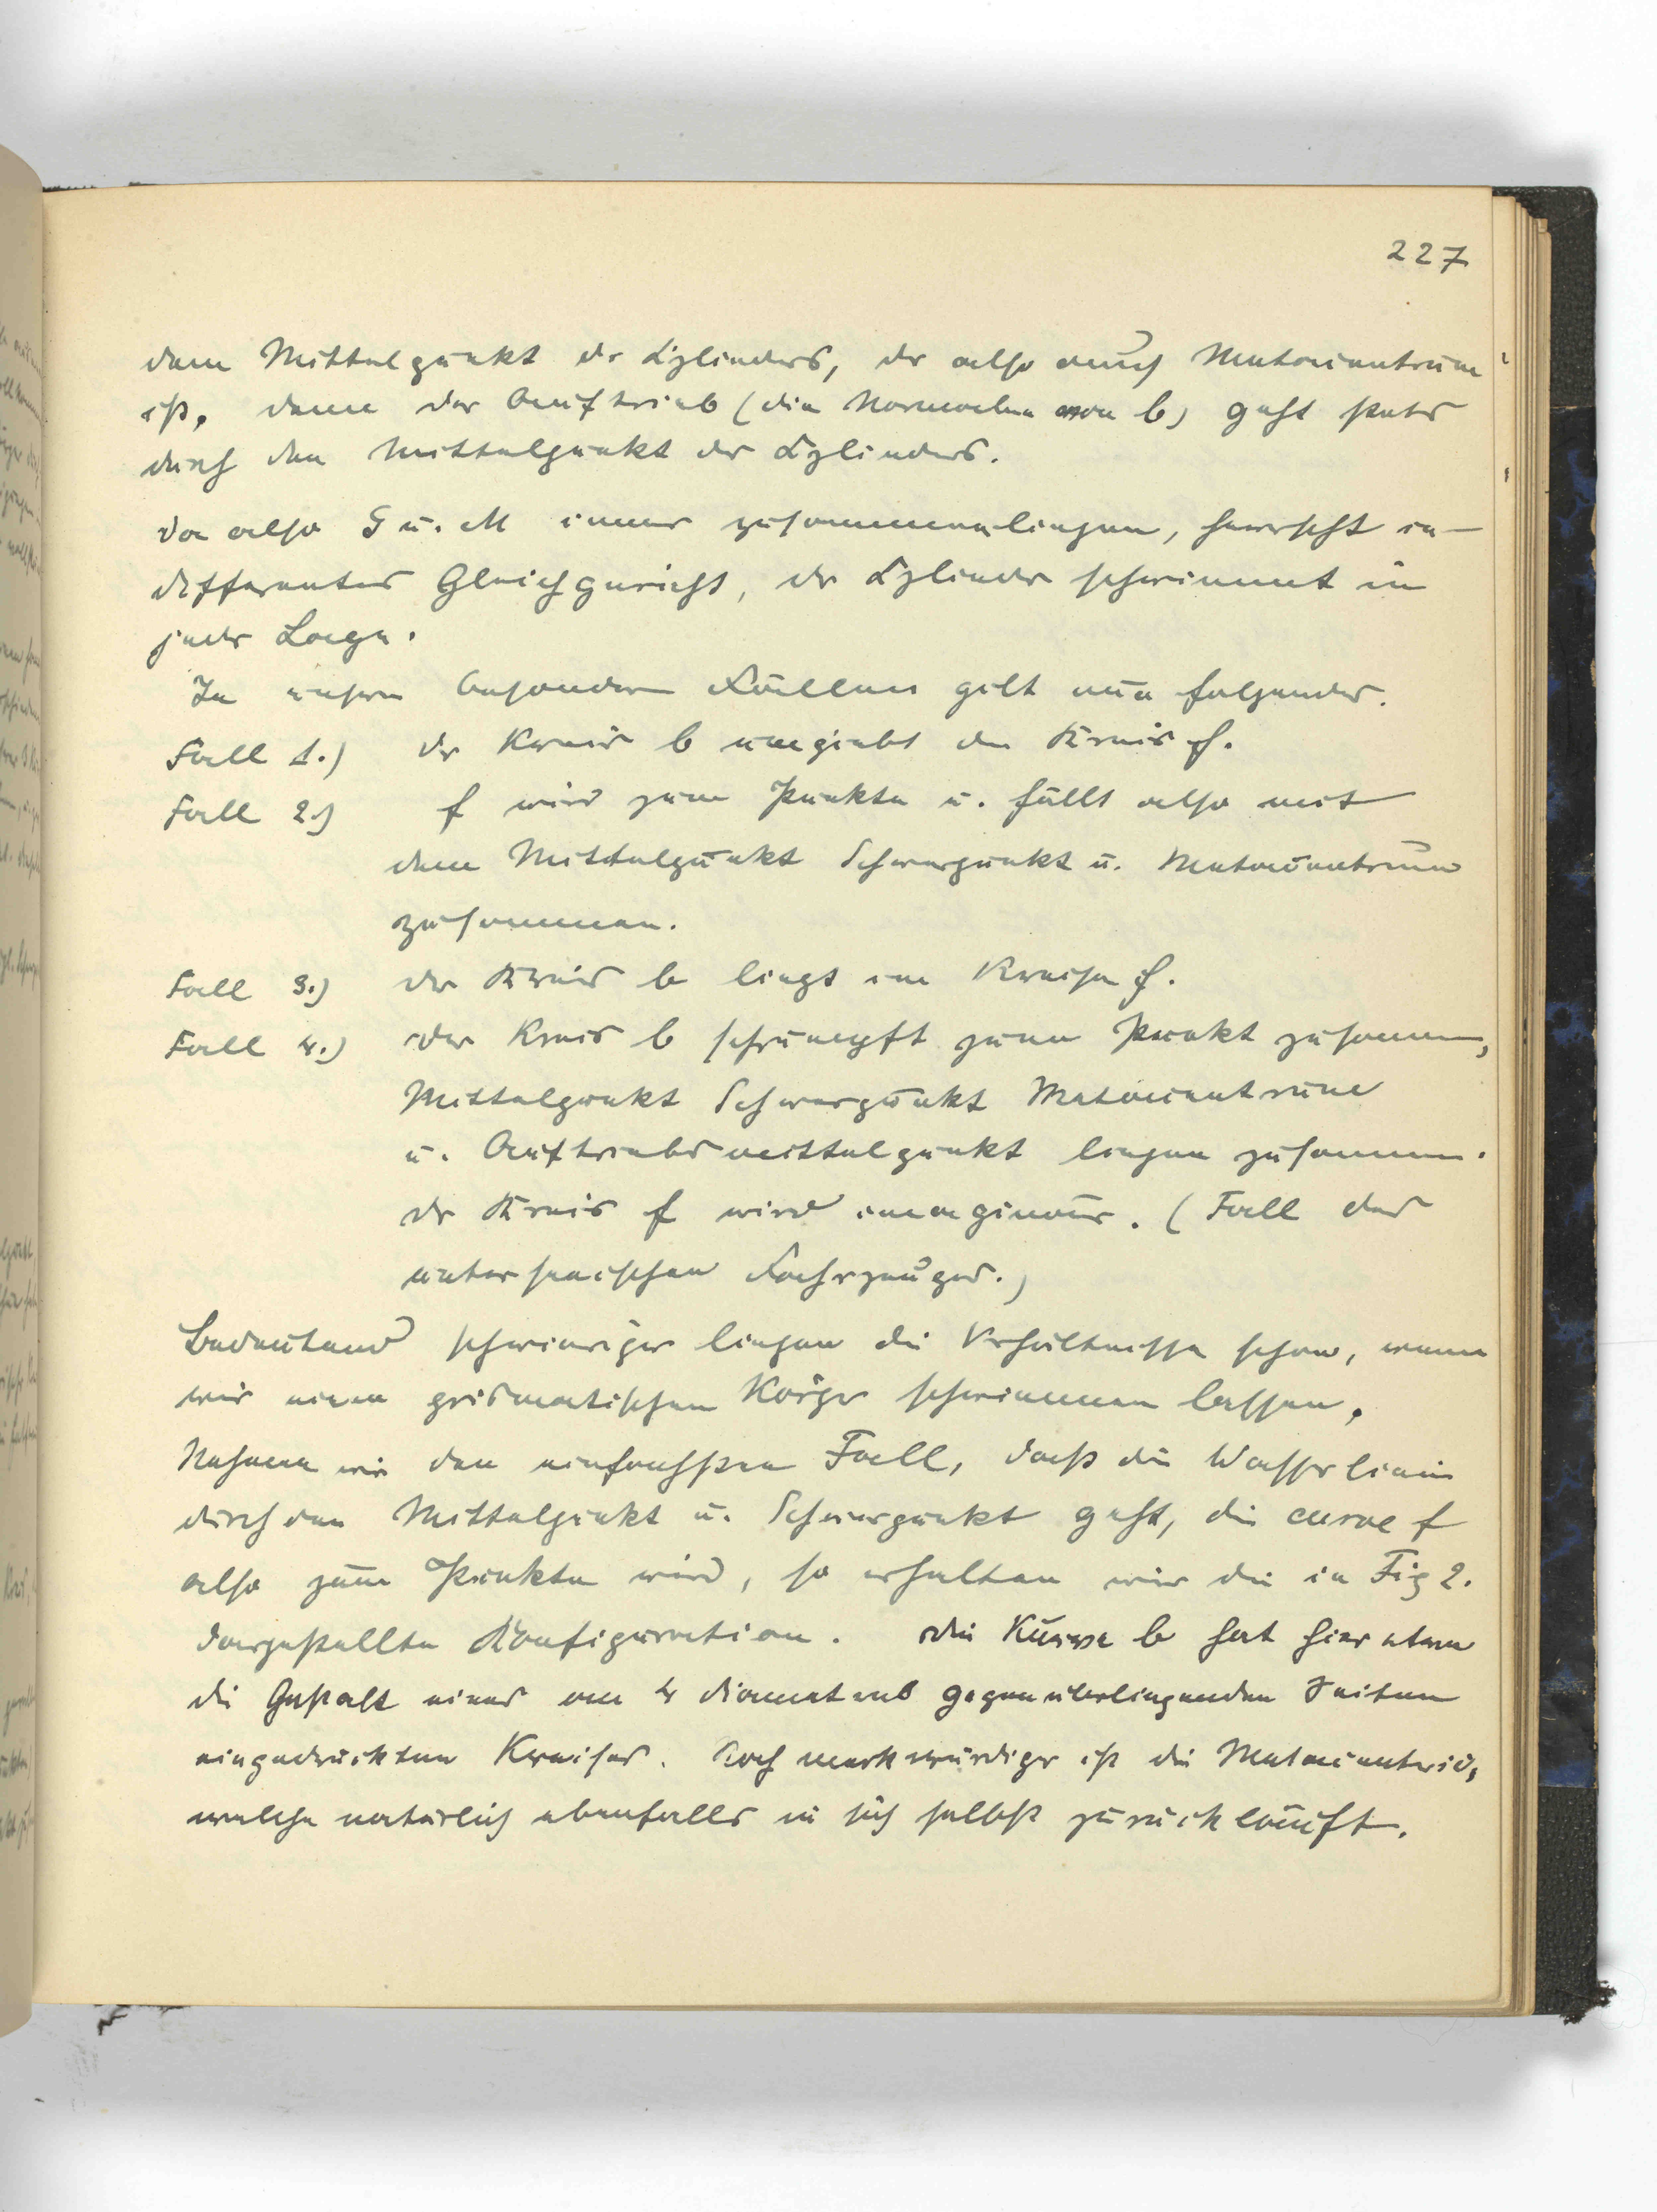 227
dem Mittelpunkt des Zylinders, der also auch Metacentrum
ist, denn der Auftrieb (die Normale von b) geht stets
durch den Mittelpunkt des Zylinders.
Da also S u. M immer zusammenliegen, herrscht in-
differentes Gleichgewicht, der Zylinder schwimmt in
jeder Lage.
In unsern besondern Fällen gilt nun folgendes.
Fall 1.) der Kreis b umgiebt den Kreis f.
Fall 2.) f wird zum Punkte u. fällt also mit
dem Mittelpunkt Schwerpunkt u. Metacentrum
zusammen.
Fall 3.) der Kreis b liegt im Kreise f.
Fall 4.) der Kreis b schrumpft zum Punkt zusammen,
Mittelpunkt Schwerpunkt Metacentrum
u. Auftriebsmittelpunkt liegen zusammen.
der Kreis f wird imaginär. (Fall des
unterseeischen Fahrzeuges.)
Bedeutend schwieriger liegen die Verhältnisse schon, wenn
wir einen prismatischen Körper schwimmen lassen.
Nehmen wir den einfachsten Fall, dass die Wasserlinie
durch den Mittelpunkt u. Schwerpunkt geht, die curve f
also zum Punkte wird, so erhalten wir die in Fig 2.
dargestellte Konfiguration. Die Kurve b hat hier etwa
die Gestalt eines an 4 diametral gegenüberliegenden Seiten
eingedrückten Kreises. Noch merkwürdiger ist die Metacentris,
welche natürlich ebenfalls in sich selbst zurückläuft.